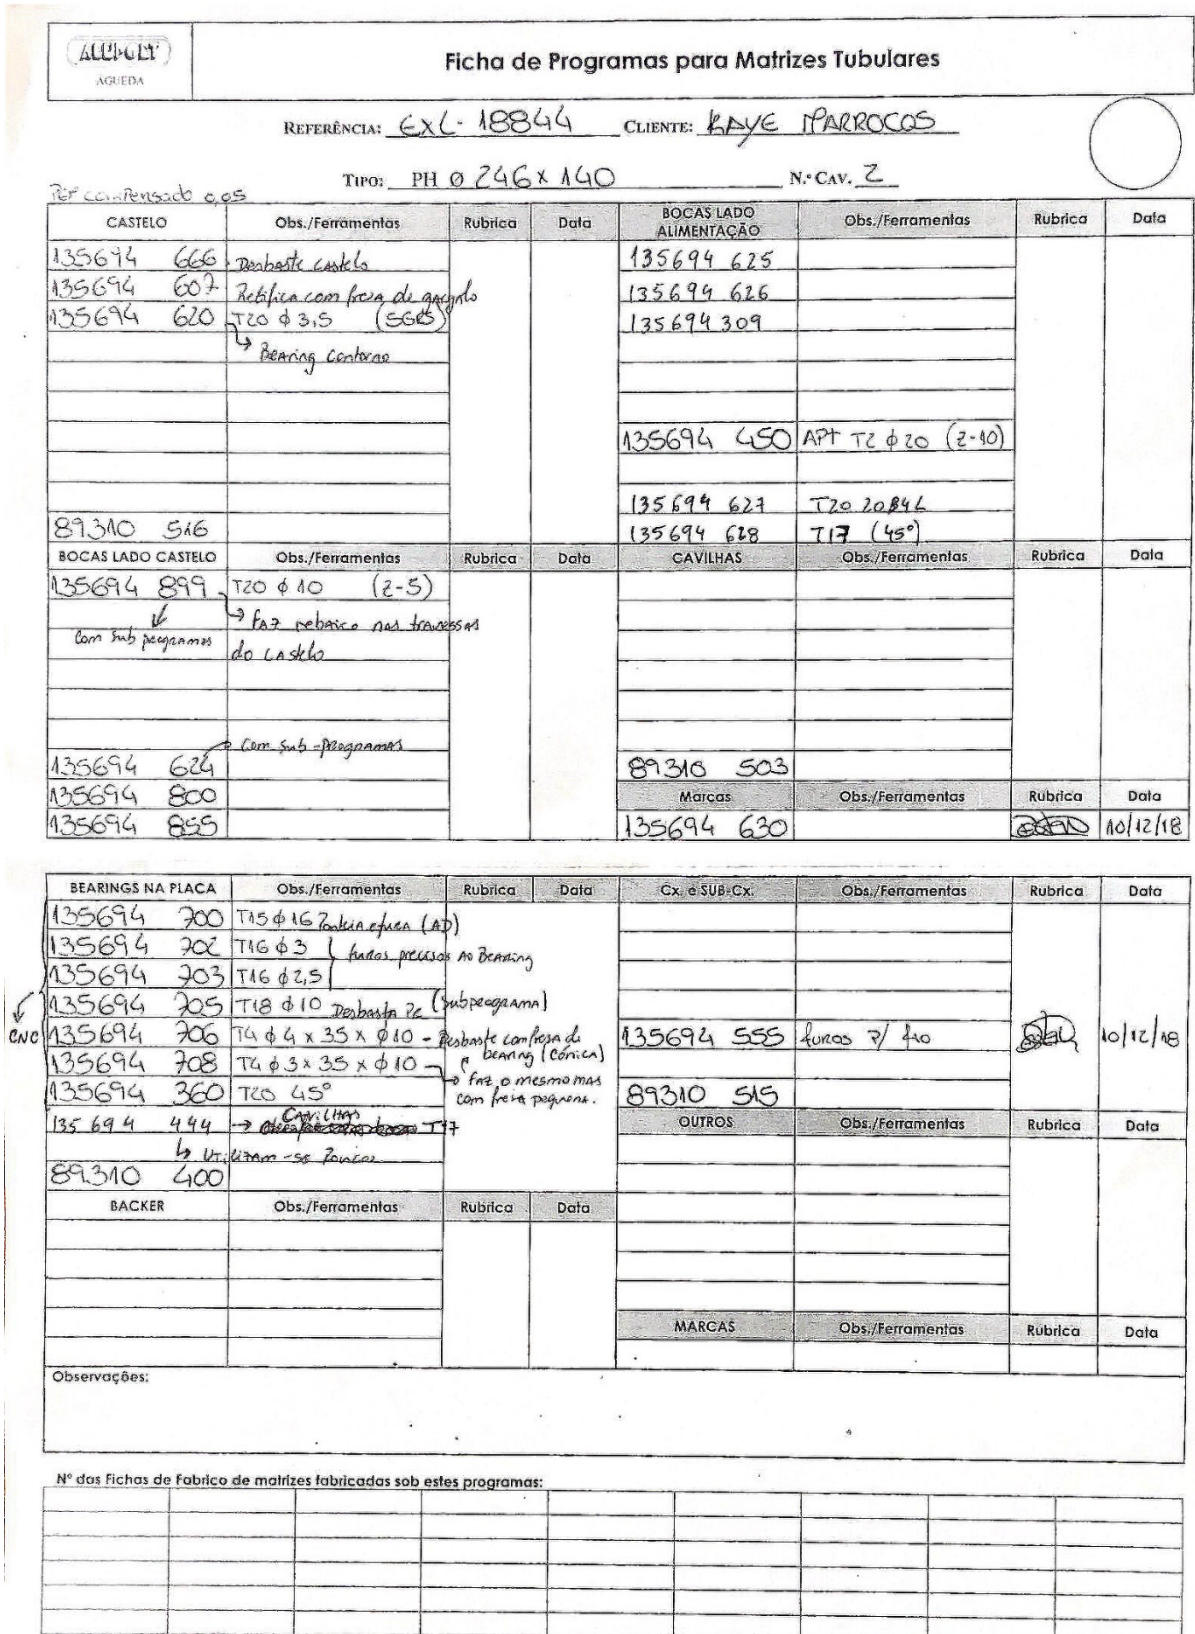 ALUPOLY
ÁGUEDA
Ficha de Programas para Matrizes Tubulares
REFERÊNCIA: EXL-18844 CLIENTE: KAYE MARROCOS
TIPO: PH Ø 246 x 140 N.º CAV. 2
Ref compensado 0,05
CASTELO Obs./Ferramentas Rubrica Data
135694 666 Desbaste castelo
135694 607 Retifica com fresa de
135694 620 T20 ϕ 3,5
↳ Bearing contorno
89310 516
BOCAS LADO ALIMENTAÇÃO Obs./Ferramentas Rubrica Data
135694 625
135694 626
135694 309
135694 450 APT T2 ϕ 20 (Z-10)
135694 627 T20
135694 628 T17 (45º)
BOCAS LADO CASTELO Obs./Ferramentas Rubrica Data
135694 899 T20 ϕ 10 (Z-5)
↳ FAZ rebaixo nas travessas
Com sub programas
do castelo
Com sub-programas
135694 624
135694 800
135694 855
CAVILHAS Obs./Ferramentas Rubrica Data
89310 503
Marcas Obs./Ferramentas Rubrica Data
135694 630 10/12/18
BEARINGS NA PLACA Obs./Ferramentas Rubrica Data
135694 700 T15 ϕ 16 (AD)
135694 702 T16 ϕ 3 furos precisos ao Bearing
135694 703 T16 ϕ 2,5
135694 705 T18 ϕ 10 Desbasta (Subprograma)
CNC
135694 706 T4 ϕ 4 x 35 x ϕ 10 - Desbaste com fresa de
bearing (Cónica)
135694 708 T4 ϕ 3 x 35 x ϕ 10 → faz o mesmo mas
com fresa pequena.
135694 360 T20 45º
135694 444 → CAVILHAS T17
↳ Utilizam-se
89310 400
Cx. e SUB-Cx. Obs./Ferramentas Rubrica Data
135694 555 furos p/ 10/12/18
89310 515
OUTROS Obs./Ferramentas Rubrica Data
BACKER Obs./Ferramentas Rubrica Data
MARCAS Obs./Ferramentas Rubrica Data
Observações:
Nº das Fichas de Fabrico de matrizes fabricadas sob estes programas: